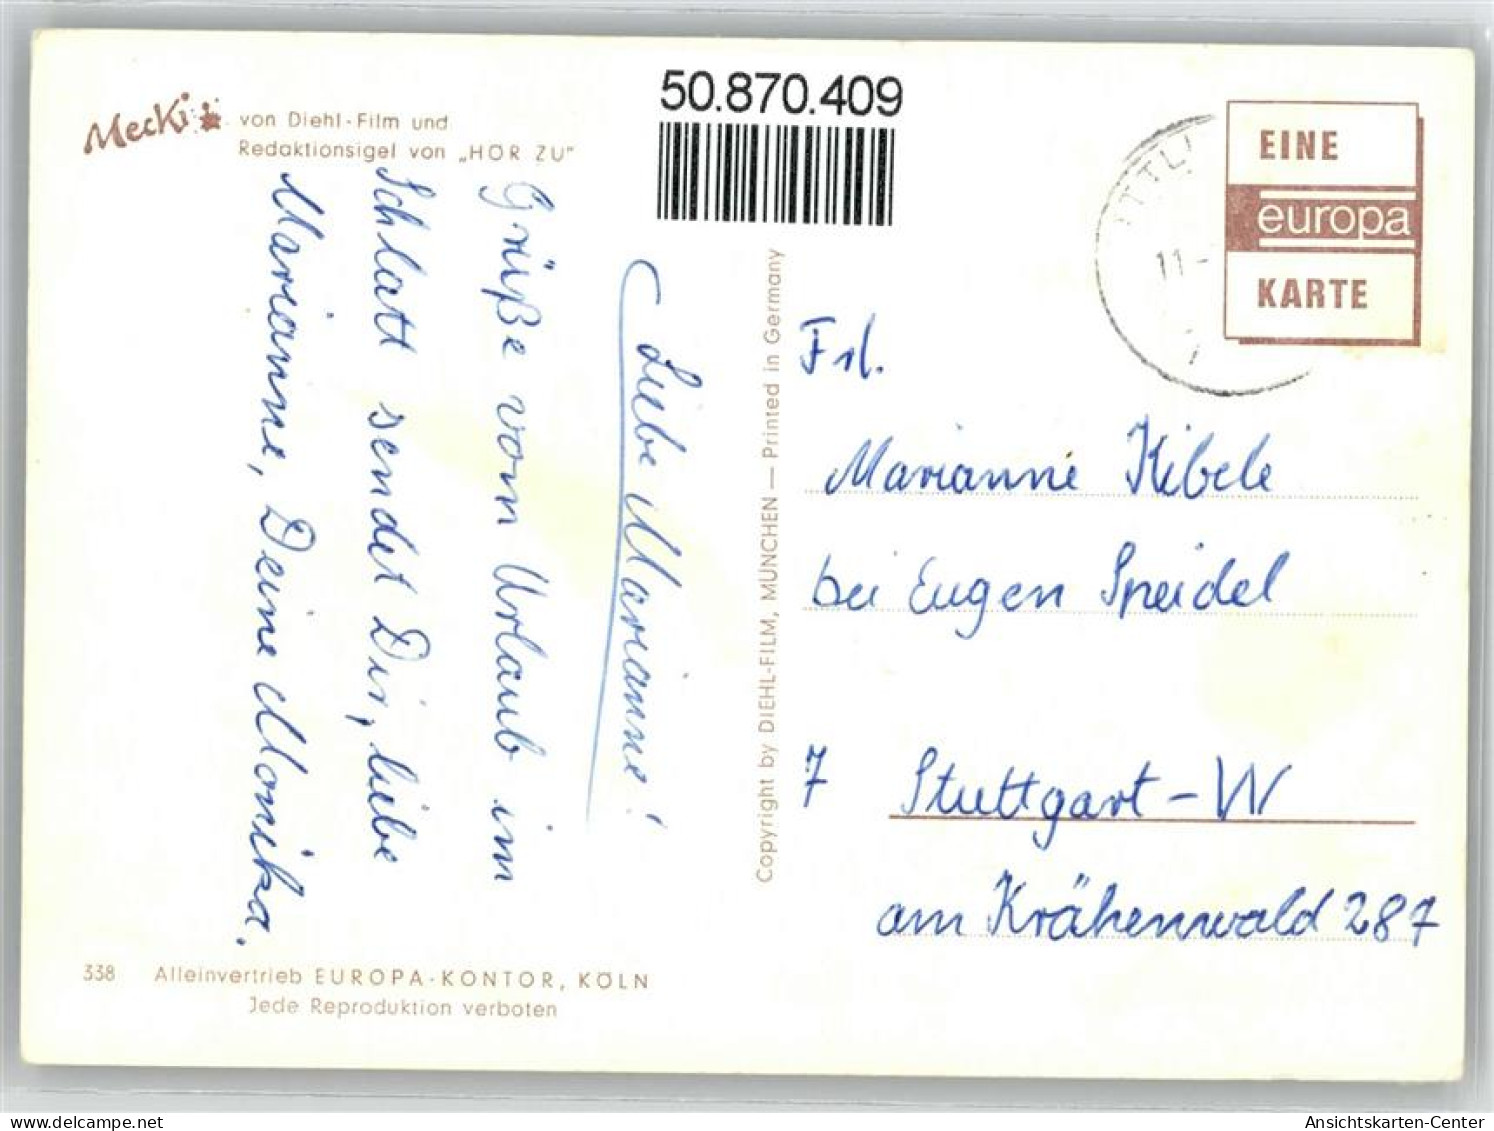 Mecki von Diehl-Film und
Redaktionsigel von „HÖR ZU"
50.870.409
EINE
europa
KARTE
11-
7
Liebe Marianne!
Grüße vom Urlaub im
Schlatt sendet Dir, liebe
Marianne, Deine Monika.
Copyright by DIEHL-FILM, MÜNCHEN — Printed in Germany
Frl.
Marianne Kibele
bei Eugen Speidel
7 Stuttgart-W
am Krähenwald 287
338 Alleinvertrieb EUROPA-KONTOR, KÖLN
Jede Reproduktion verboten
delcampe.net
Ansichtskarten-Center